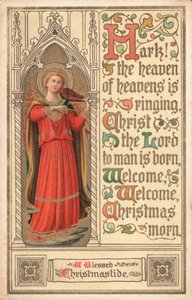 Hark!
the heaven
of heavens is
ringing,
Christ
the Lord
to man is born,
Welcome,
Welcome
Christmas
morn.
A Blessed
Christmastide.